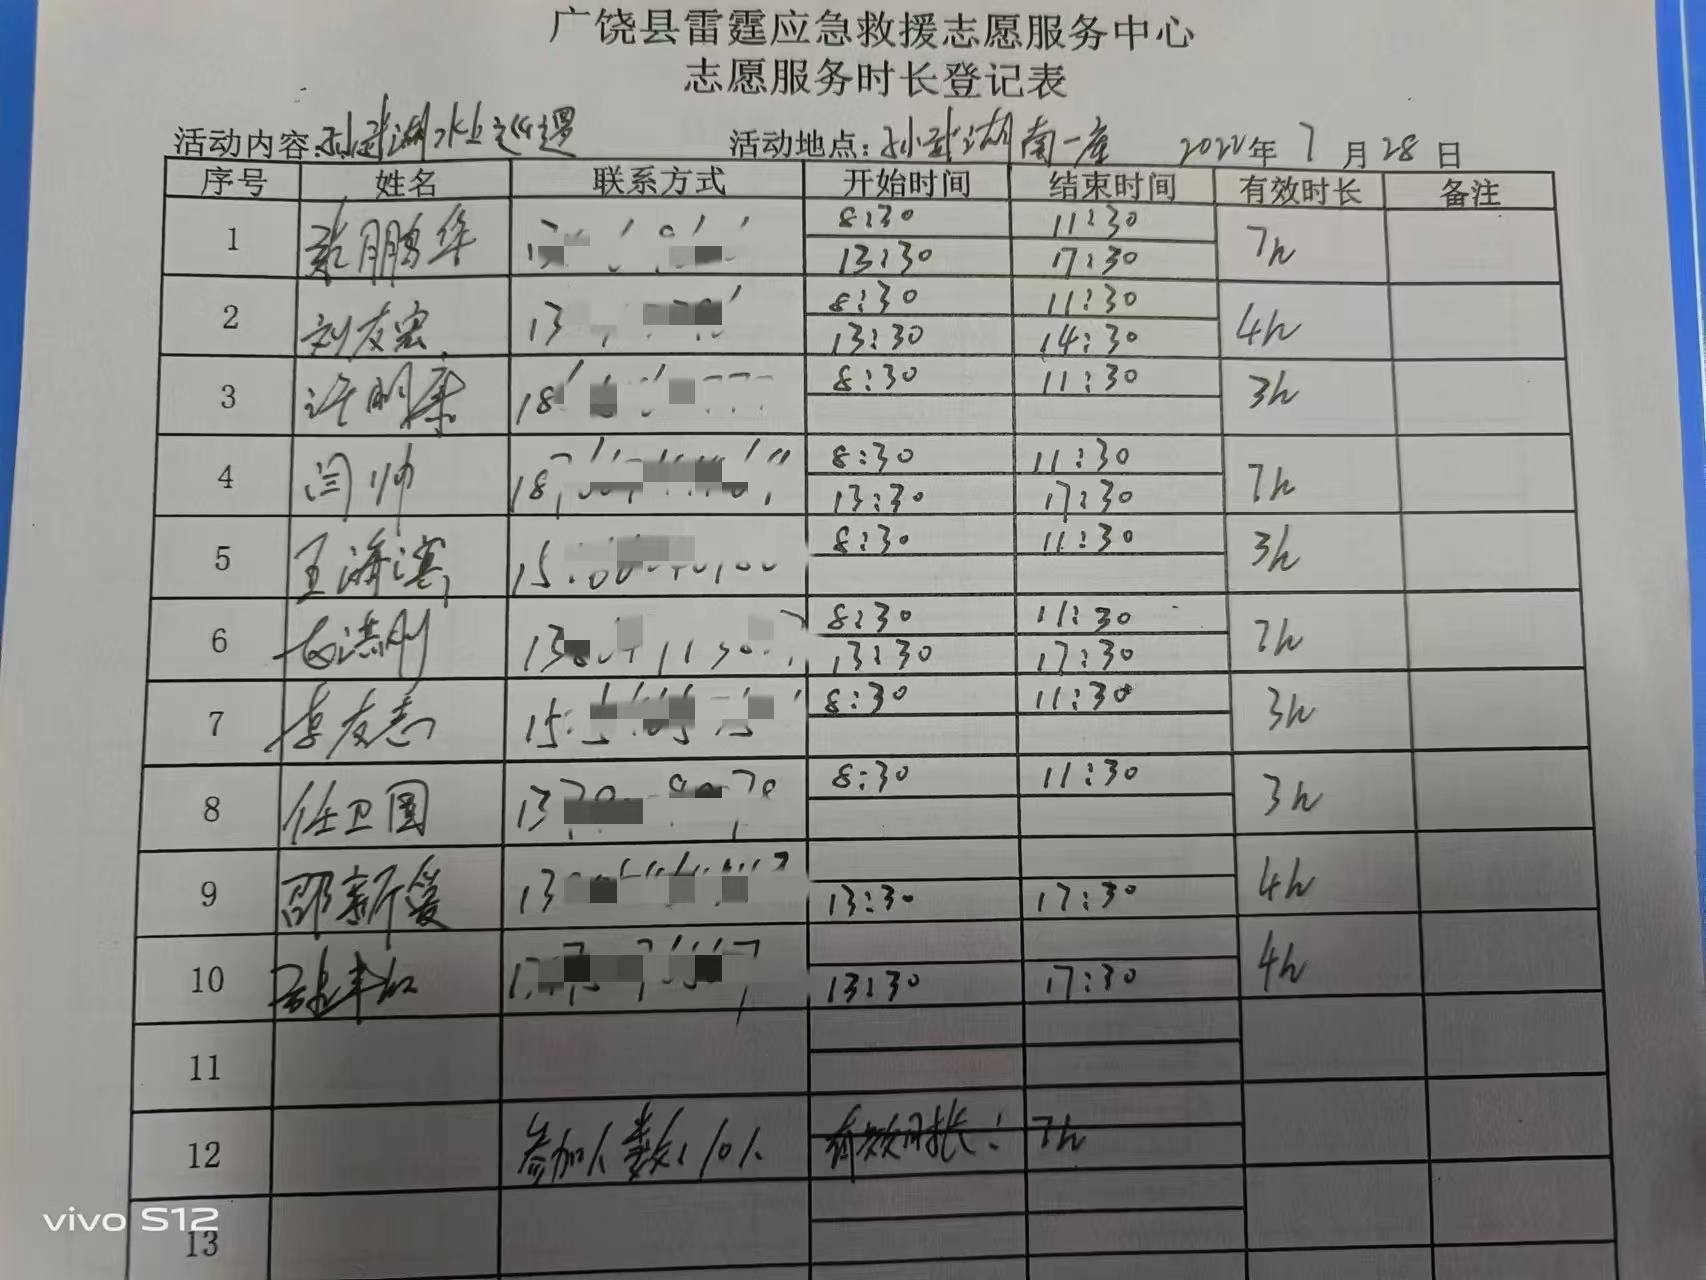 广饶县雷霆应急救援志愿服务中心
志愿服务时长登记表
活动内容:孙武湖水上巡逻 活动地点:孙武湖南一座 2022年7月28日
序号 姓名 联系方式 开始时间 结束时间 有效时长 备注
1 张鹏华 8:30 11:30 7h
13:30 17:30
2 刘友宏 13 8:30 11:30 4h
13:30 14:30
3 许明康 18 8:30 11:30 3h
4 闫帅 18 8:30 11:30 7h
13:30 17:30
5 王海滨 15 8:30 11:30 3h
6 洪刚 13 8:30 11:30 7h
13:30 17:30
7 李友志 15 8:30 11:30 3h
8 任卫国 13 8:30 11:30 3h
9 邵新爱 13 13:30 17:30 4h
10 13:30 17:30 4h
11
12 参加人数:10人 有效时长: 7h
13
vivo S12